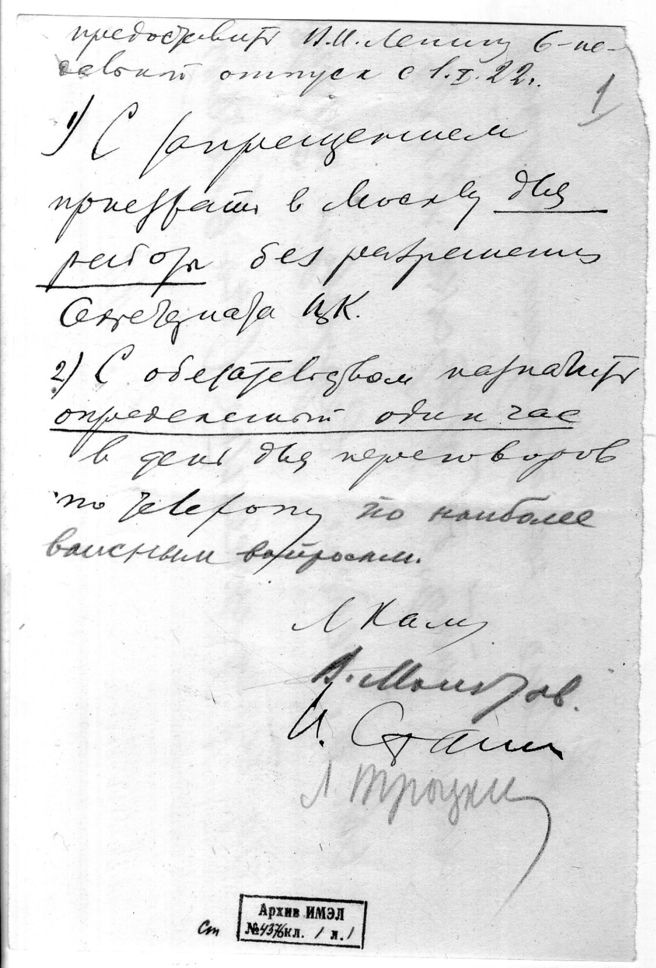 предоставить В.И. Ленину 6-не-
дельный отпуск с 1.X.22 г.
1
1) С запрещением
приезжать в Москву для
работы без разрешения
Секретариата ЦК.
2) С обязательством назначить
определенный один час
в день для переговоров
по telefony по наиболее
важным вопросам.
Л Каме
В. Молотов.
И. Сталин
Л Троцкий
Ст
Архив ИМЭЛ
№4376 кл. 1 л. 1